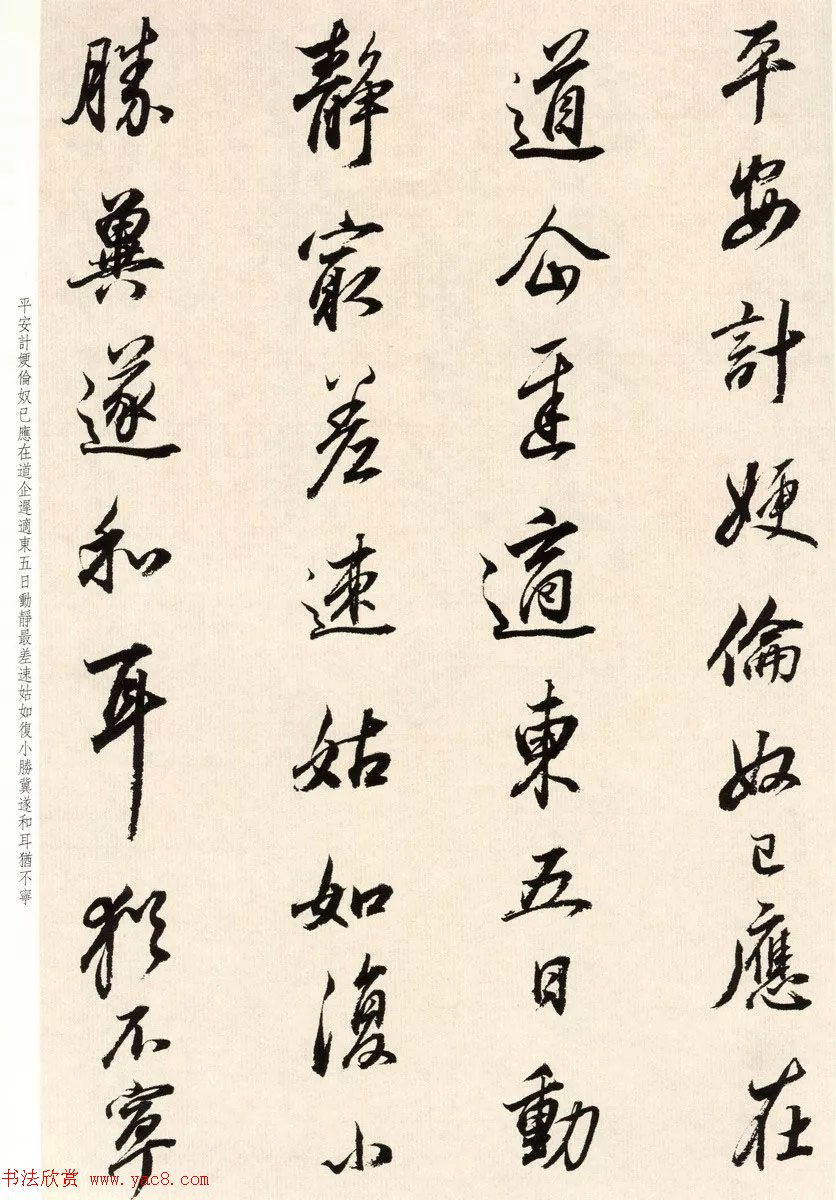 平安計㛐倫奴已應在
道企遲適東五日動
靜最差速姑如復小
勝冀遂和耳猶不寧
平安計㛐倫奴已應在道企遲適東五日動靜最差速姑如復小勝冀遂和耳猶不寧
书法欣赏 www.yac8.com